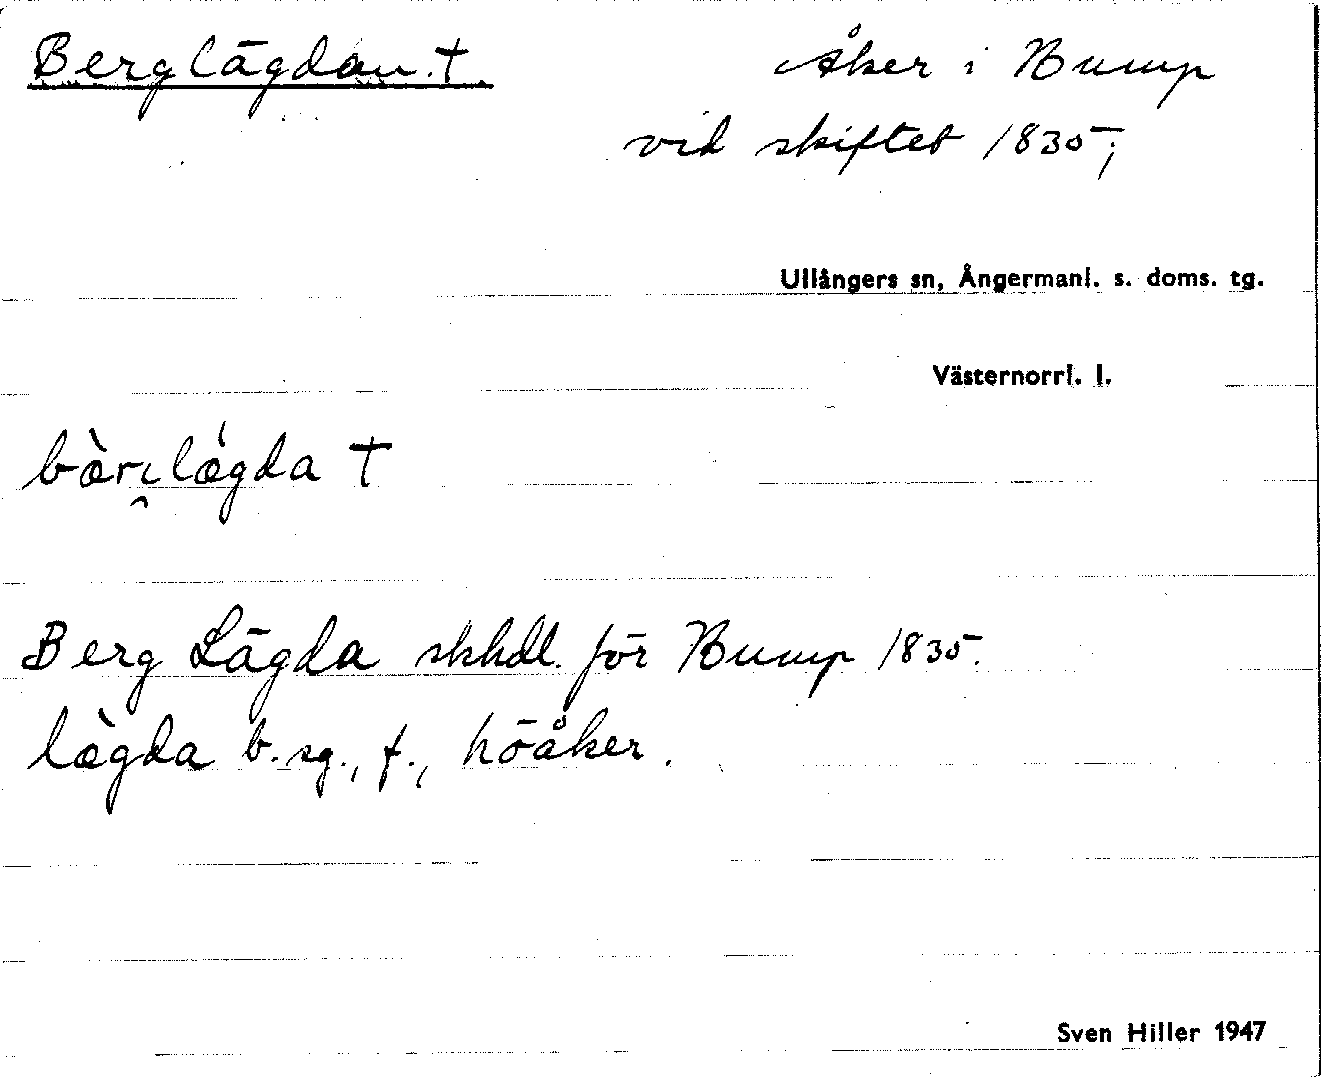 Berglägdan. †
Åker i Bump
vid skiftet 1835;
Ullångers sn, Ångermanl. s. doms. tg.
Västernorrl. l.
†
Berg Lägda skhdl. för Bump 1835.
læ̀gda b. sg., f., höåker.
Sven Hiller 1947